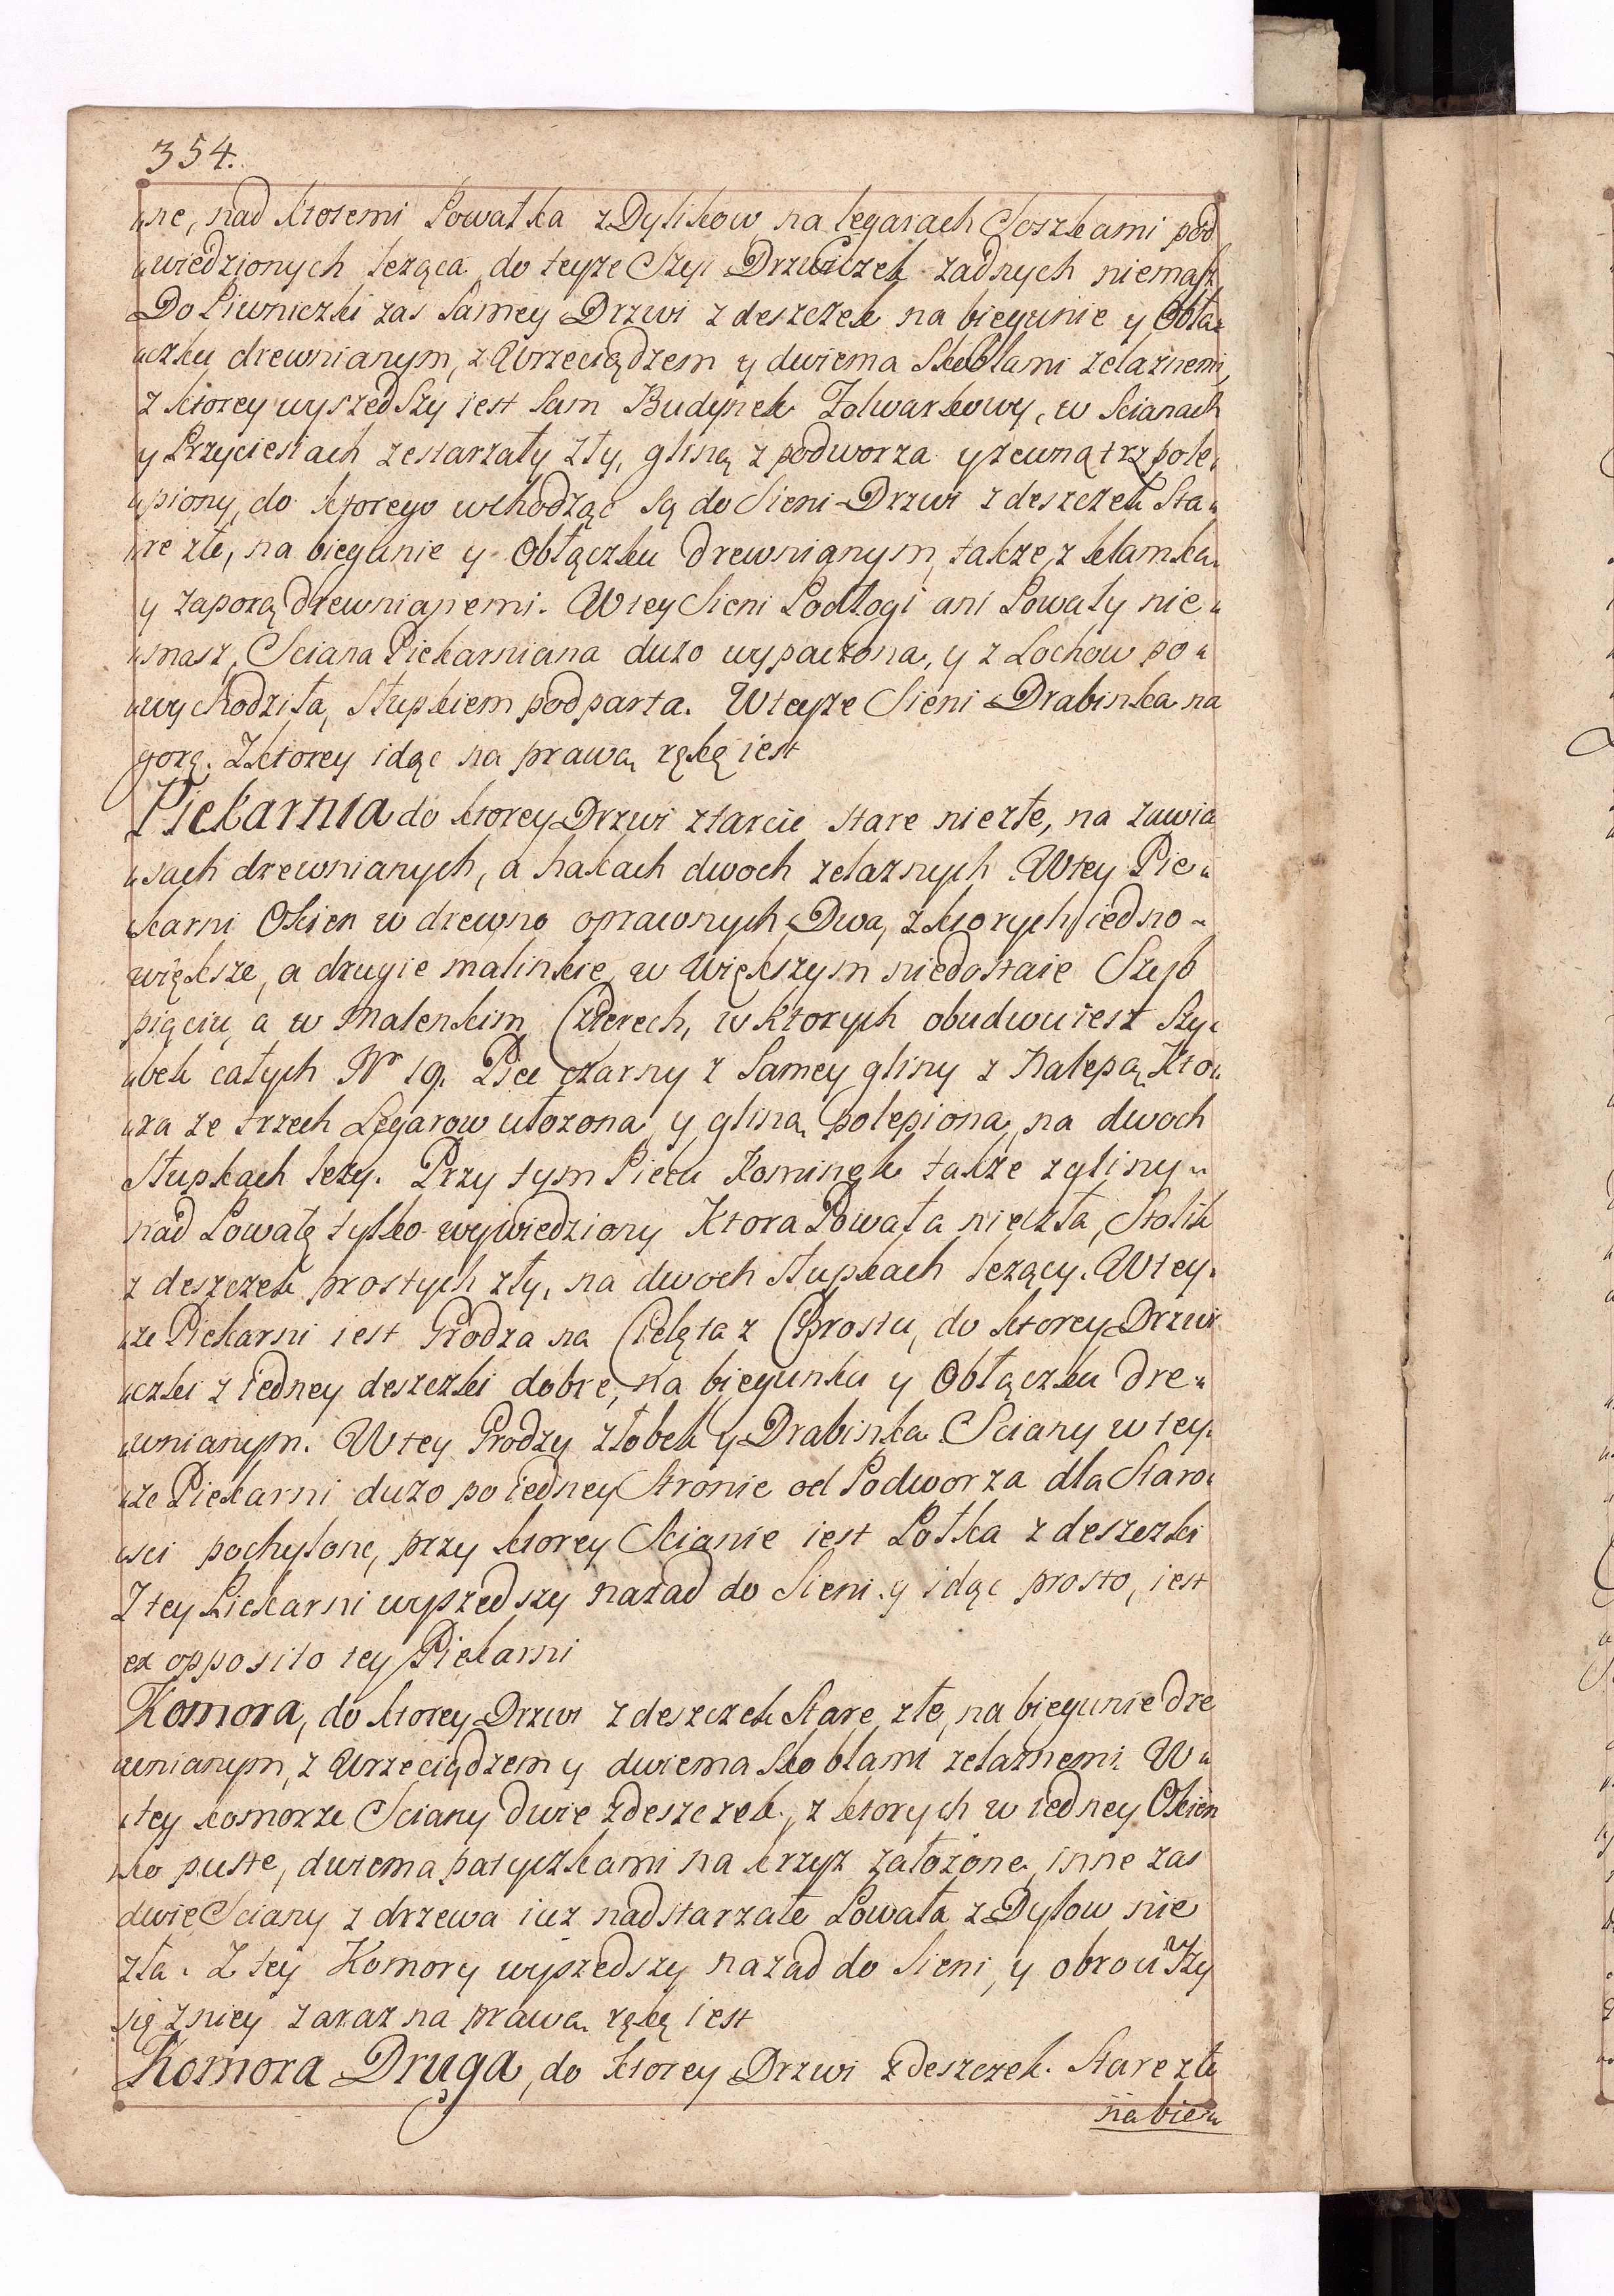 354.
„ne, nad ktoremi Powałka z Dylikow na legarach Soszkami pod
„wiedzionych leząca, do teyze Szyi Drzwiczek zadnych niemasz
Do Piwniczki zas Samey Drzwi z deszczek na biegunie y Obłą„
„czku drewnianym, z Wrzeciądzem y dwiema Skoblami zelaznemi,
z ktorey wyszedszy iest Sam Budynek Folwarkowy, w Scianach
y Przyciesiach zestarzały zły, gliną z podworza y zewnątrz pole„
„piony, do ktorego wchodząc są do Sieni Drzwi z deszczek Sta„
„re złe, na biegunie y Obłączku drewnianym, takze, z klamką
y zaporą drewnianemi. W tey Sieni Podłogi ani Powały nie„
„masz, Sciana Piekarniana duzo wypaczona, y z Lochow po„
„wychodziła, Słupkiem podparta. W teyze Sieni Drabinka na
gorę. Z ktorey idąc na prawą rękę iest
Piekarnia do ktorey Drzwi z tarcic stare niezłe, na zawia
„sach drewnianych, a hakach dwoch zelaznych. W tey Pie„
„karni Okien w drewno oprawnych Dwa, z ktorych iedno„
większe, a drugie malinkie, w Większym niedostaie Szyb
pięciu, a w Malenkim Czterech, w ktorych obudwu iest Szy„
„bek całych Nr 19. Piec czarny z Samey gliny z Nalepą, Kto„
„ra ze trzech Legarow ułozona, y gliną polepiona, na dwoch
Słupkach lezy. Przy tym Piecu Kominek takze z gliny„
nad Powałę tylko wywiedziony Ktora Powała niezła, Stolik
z deszczek prostych zły, na dwoch słupkach lezący. W tey„
„ze Piekarni iest Grodza na Cielęta z Chrostu, do ktorey Drzwi
„czki z iedney deszczki dobre, na biegunku y Obłączku dre„
„wnianym. W tey Grodzy złobek y Drabinka. Sciany w tey„
„ze Piekarni duzo po iedney Stronie od Podworza dla Staro„
„sci pochylone, przy ktorey Scianie iest Połka z deszczki
Z tey Piekarni wyszedszy nazad do Sieni y idąc prosto, iest
ex opposito tey Piekarni
Komora, do ktorey Drzwi z deszczek Stare złe, na biegunie dre
„wnianym, z Wrzeciądzem y dwiema Skoblami zelaznemi W„
„tey komorze Sciany dwie z deszczek, z ktorych w iedney Okien
„ko puste, dwiema patyczkami na krzyz załozone, inne zas
dwie Sciany z drzewa iuz nadstarzałe Powała z Dylow nie
zła. Z tey Komory wyszedszy nazad do Sieni, y obrociwszy
się z niey zaraz na prawą rękę iest
Komora Druga, do ktorey Drzwi z deszczek Stare złe
na bie„